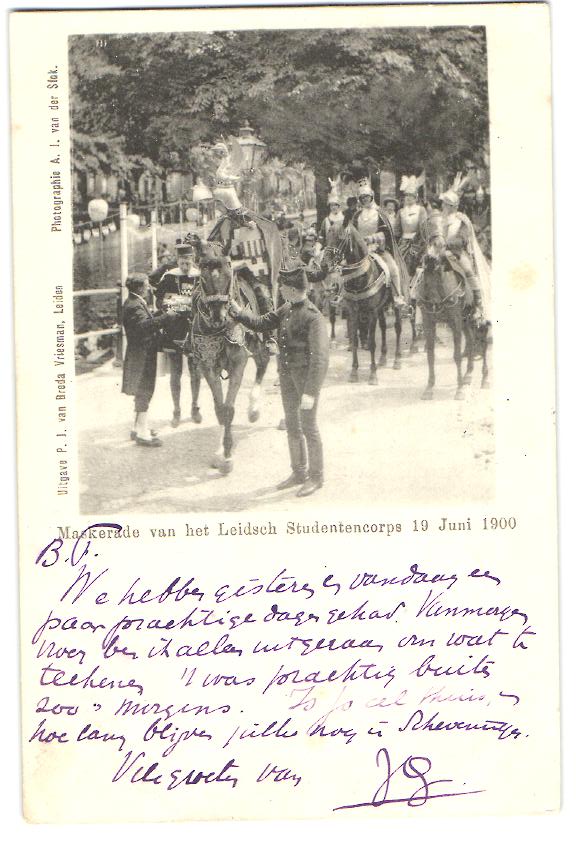 Photographie A. J. van der Stok.
Uitgave P. J. van Breda Vriesman, Leiden
Maskerade van het Leidsch Studentencorps 19 Juni 1900
B. T.
We hebben gisteren en vandaag een
paar prachtige dagen gehad. Vanmorgen
vroeg ben ik alleen uitgegaan om wat te
teekenen 't was prachtig buiten
zoo 's morgens. Is Jo al thuis, en
hoe lang blijven jullie nog in Scheveningen.
Vele groeten van
JG